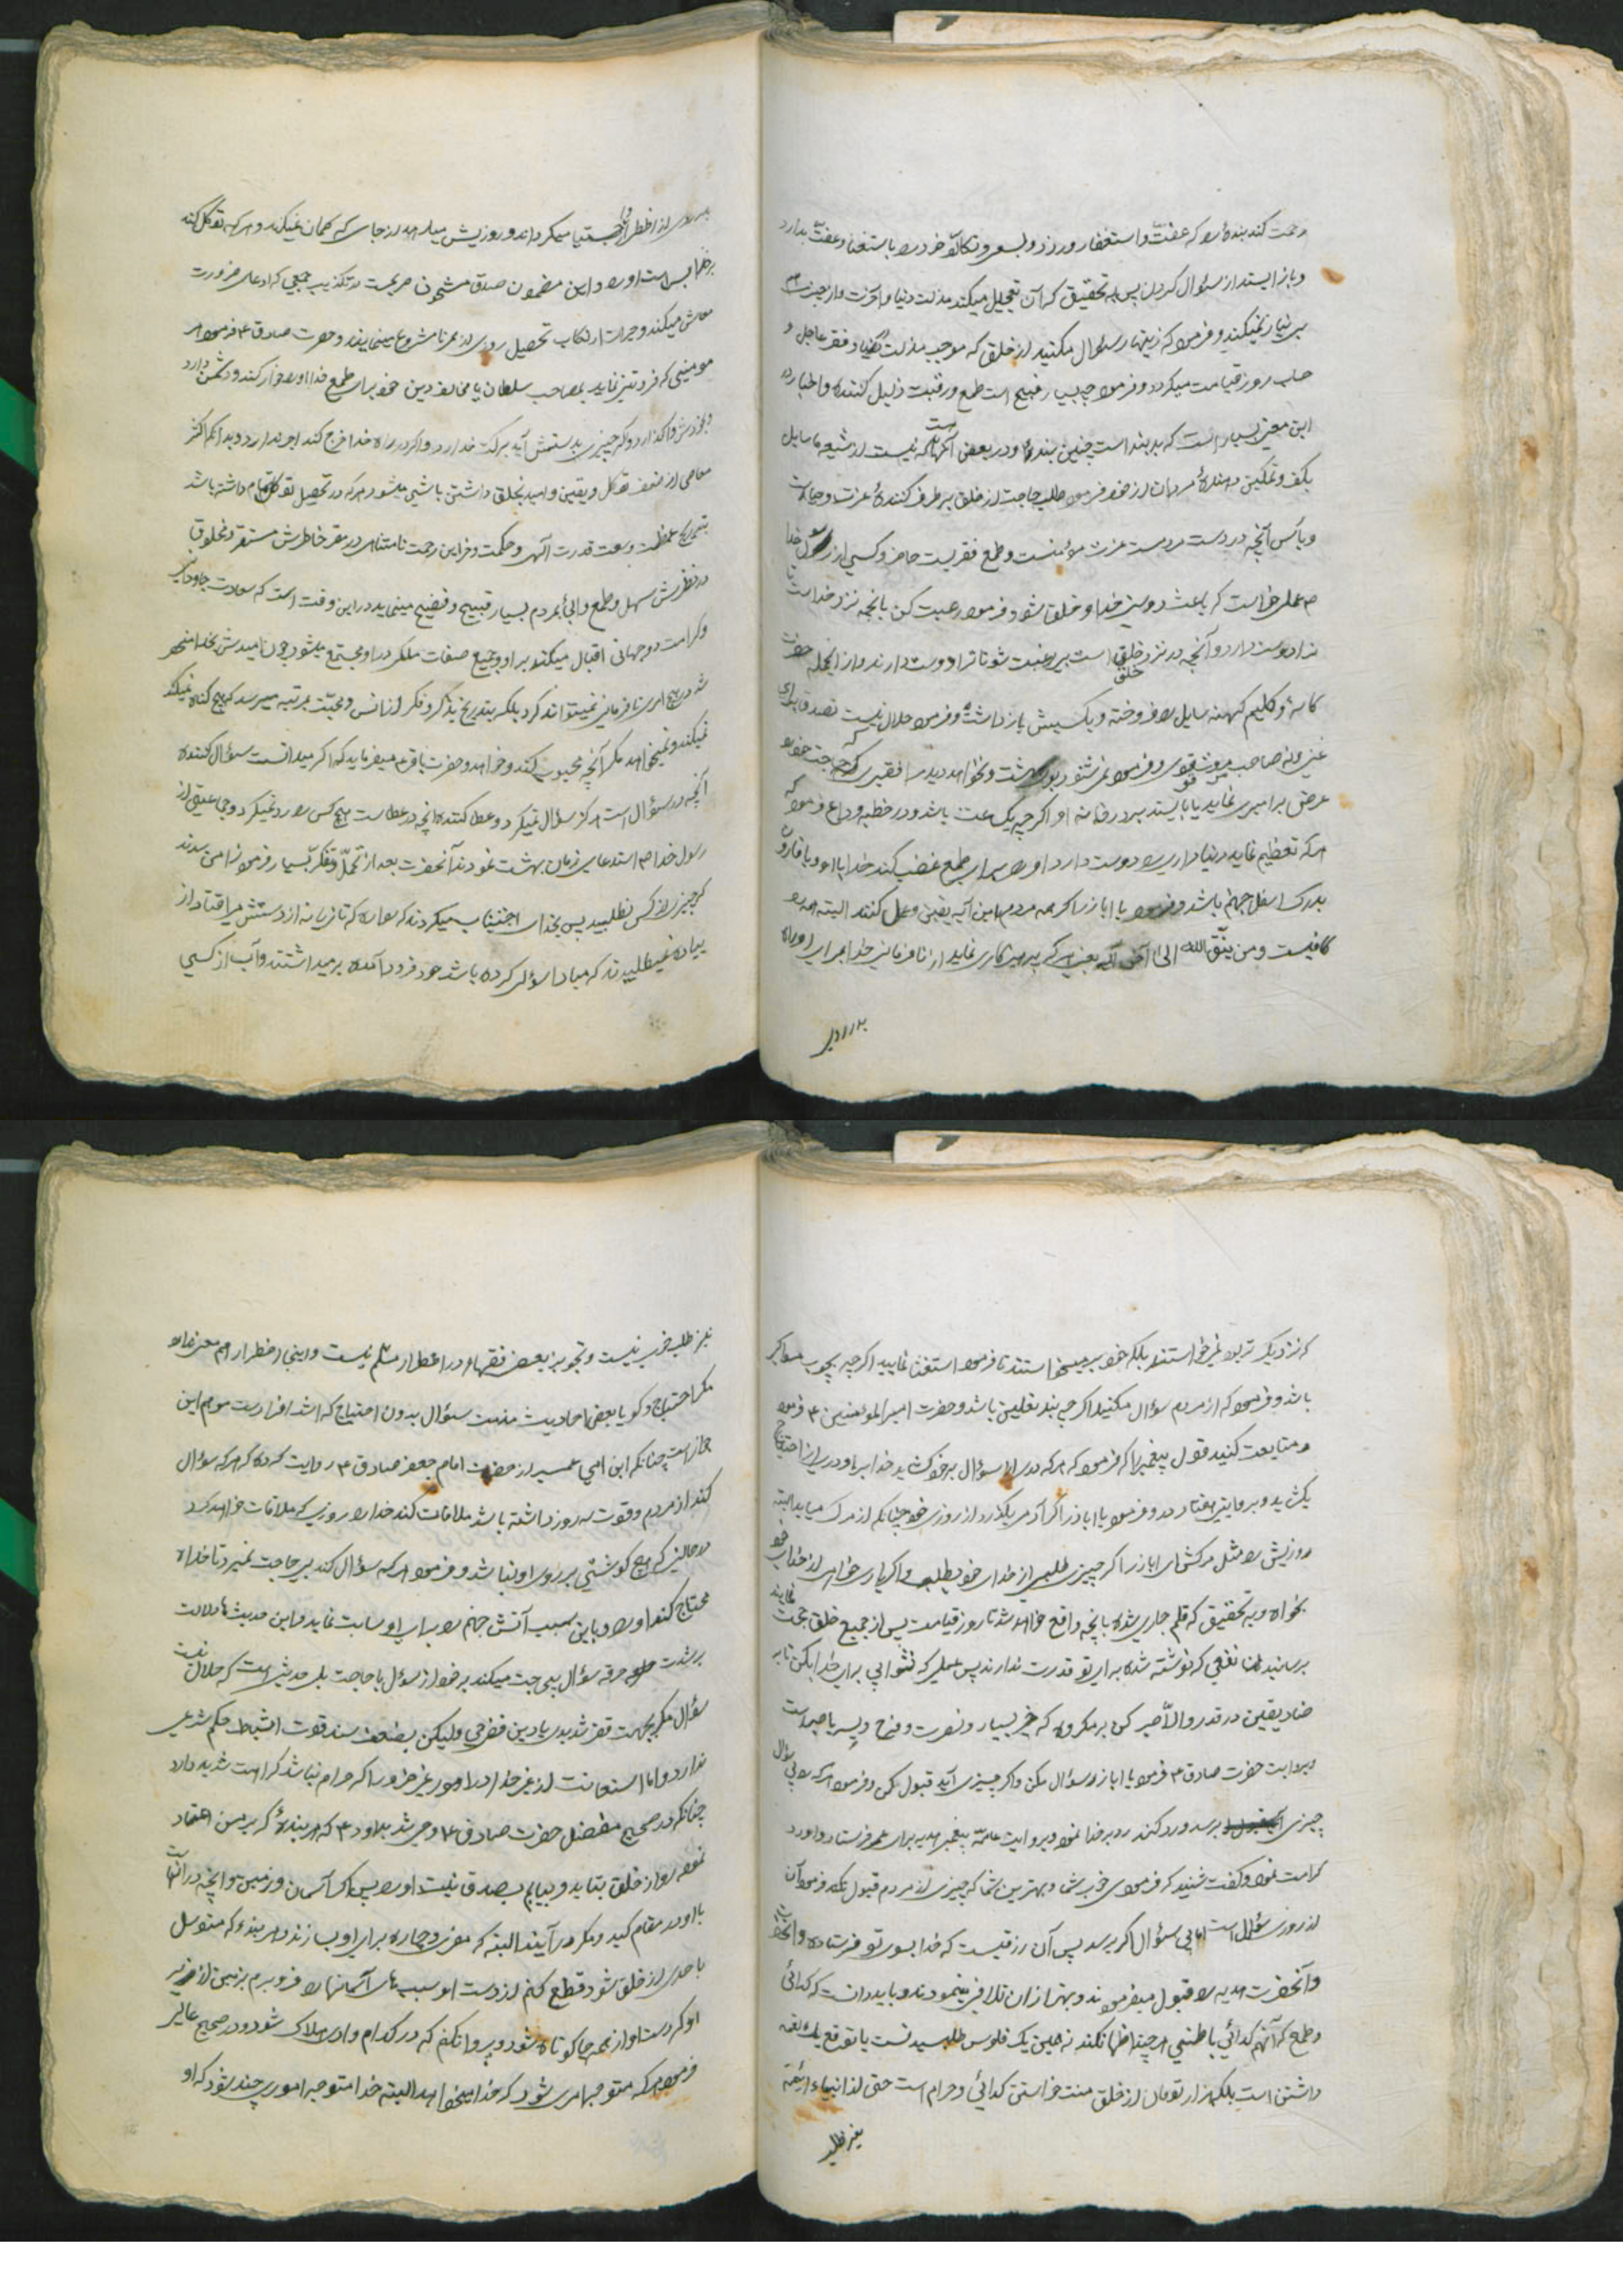 رحمت کند بنده را که عفت و استغفار ورزد و
و باز ایستد از سؤال کردن پس به تحقیق که آن تعجیل میکند مذلت دنیا و آخرت و از چیزی
بی نیاز نمیکند و فرمود که زینهار سؤال مکنید از خلق که موجب مذلت دنیا و فقر عاجل و
حساب روز قیامت میگردد و فرمود چه بسیار قبیح است طمع و رغبت ذلیل کننده و اخبار در
این معنی بسیار است که بد بنده است چنین بنده و در بعضی آنها که نیست از شیعه ما سایل
بکف و فرمود طلب حاجت از خلق برطرف کنندهٔ عزت و حیا است
و یأس آنچه در دست مردمست عزت مؤمنست و طمع فقریست حاضر و کسی از رسول خدا
ص عملی خواست که باعث دوستی خدا و خلق شود فرمود رغبت کن بآنچه نزد خداست تا
خدا دوست دارد و آنچه در نزد خلق است بی رغبت شو تا ترا دوست دارند و از آنجمله حضرت
کاسه و گلیم کهنه سایل را فروخته و بکسبش باز داشت و فرمود حلال نیست تصدق برای
غنی و نه صاحب قوی و فرمود نمی شنود بوی بهشت و نخواهد دید فقیری که حاجت خود
عرض بر امیری نماید یا بایستد بر در خانه او اگر چه یک ساعت باشد و در خطبه وداع فرمود که
هر که تعظیم نماید دنیاداری را و دوست دارد او را برای طمع غضب کند خدا بر او و با قارون
بدرک اسفل جهنم باشد و فرمود یا اباذر اگر همه مردم باین آیه یقین و عمل کنند البته همه را
کافیست و من یتق الله الی آخر آیه یعنی هر که پرهیزکاری نماید از نافرمانی خدا برای او راه
بدر روی
بدر روی از اضطرار و میگرداند و روزیش میدهد از جایی که گمان نمیکند و هر که توکل کند
بر خدا بس است او را و این مضمون صدق مشحون صریحست در تکذیب جمعی که ادعای ضرورت
معاش میکنند و جرات ارتکاب تحصیل روزی از ممر نامشروع مینمایند و حضرت صادق ع فرمود هر
مومنی که فروتنی نماید بصاحب سلطان یا مخالف دین خود برای طمع خدا او را خوار کند و دشمن دارد
و بخودش واگذارد و اگر چیزی بدستش آید برکت ندارد و اگر در راه خدا خرج کند اجر ندارد و بدانکه اکثر
معاصی از ضعف توکل و یقین و امید بخلق داشتن ناشی میشود هر که در تحصیل توکل اهتمام داشته باشد
بتدریج عظمت و وسعت قدرت الهی و حکمت و خزاین رحمت نامتناهی در مقر خاطرش مستقر و مخلوق
در نظرش سهل و طمع و التجا بمردم بسیار قبیح و فضیح مینماید در این وقت است که سعادت جاودانی
و کرامت دو جهانی اقبال میکند بر او و جمیع صفات ملکی در او مجتمع میشود چون امیدش بخدا منحصر
شد در هیچ امری نافرمانی نمیتواند کرد بلکه بتدریج بذکر و فکر از انس و محبت بمرتبه میرسد که هیچ گناه نمیکند
نمیکند و نمیخواهد مگر آنچه محبوب کند و خواهد و حضرت باقر ع میفرماید که اگر میدانست سؤال کننده
آنچه در سؤال است هرگز سؤال نمیکرد و عطا کننده آنچه در عطاست هیچ کس را رد نمیکرد و جماعتی از
رسول خدا ص استدعای ضمان بهشت نمودند آنحضرت بعد از تأمل و تفکر بسیار فرمود ضامن شدم
که چیزی از کس نطلبید پس بحدی اجتناب میکردند که سواره که تازیانه از دستش می افتاد از
پیاده نمیطلبیدند که مبادا سؤالی کرده باشد خود فرود آمده برمیداشتند و آب از کسی
که نزدیک تر بود نمی خواستند بلکه خود برمیخواستند تا فرمود استغنا نمایید اگر چه بچوب مسواک
باشد و فرمود که از مردم سؤال مکنید اگر چه بند نعلین باشد و حضرت امیر المؤمنین ع فرمود
متابعت کنید قول پیغمبر را که فرمود که هر که در سؤال بر خود گشاید خدا بر او دری از احتیاج
بگشاید و بروایتی هفتاد در و فرمود یا اباذر اگر آدمی بگریزد از روزی خود چنانکه از مرگ میابد البته
روزیش را مثل مرگش ای اباذر اگر چیزی طلبی از خدای خود بطلب و اگر یاری خواهی از خدای خود
بخواه و به تحقیق که قلم جاری شده بآنچه واقع خواهد شد تا روز قیامت پس از جمیع خلق جمعیت نمایند
برسانند نفعی که نوشته نشده برای تو قدرت ندارند پس عملی که توانی برای خدا بکن تا به
یقین در قدر والا صبر کن بر مکروه که خیر بسیار و نصرت و فرح و یسر با صبر است
و بروایت حضرت صادق ع فرمود یا اباذر سؤال مکن و اگر چیزی آید قبول کن و فرمود هر که را بی سؤال
چیزی برسد و رد کند رد بر خدا نموده و بروایت عامه پیغمبر هدیه برای عمر فرستاد و او رد
کرامت نمود و گفت شنیدم که فرمودی خیر شما و بهترین شما که چیزی از مردم قبول نکند فرمود آن
از روی سؤال است اما بی سؤال اگر برسد پس آن رزقیست که خدا بسوی تو فرستاده
و آنحضرت هدیه را قبول میفرمودند و بهتر از آن تلافی مینمودند و باید دانست که گدائی
و طمع که آنهم گدائی باطنیی هر چند اظهار نکند نه همین یک فلوس طلبیدنست یا توقع یک لقمه
داشتن است بلکه هزار تومان از خلق منت خواستن گدائی و حرام است حتی از انبیاء و ائمه
بغیر طلب
بغیر طلب خوب نیست و تجویز بعضی فقها در اضطرار مسلم نیست و اینجا اضطرار هم معنی ندارد
مگر احتیاج و گویا بعضی احادیث مذمت سؤال بدون احتیاج که اشد افرادست موهم این
جواز است چنانکه ابن ابی عمیر از حضرت امام جعفر صادق ع روایت کرده که هر که سؤال
کند از مردم و قوت سه روز داشته باشد ملاقات کند خدا را روزی که ملاقات خواهد کرد
در حالتی که هیچ گوشتی بر روی او نباشد و فرمود هر که سؤال کند بی حاجت نمیرد تا خدا
محتاج کند او را و باین سبب آتش جهنم را برای او ثابت نماید و این حدیث ها دلالت
بر شدت حرقه سؤال بی حاجت میکند نه جواز سؤال با حاجت بلی حدیثی هست که حلال نیست
سؤال مگر بجهت فقر شدید یا دین فضیحی ولیکن بضعف سند قوت استنباط حکم شرعی
ندارد و اما استعانت از غیر خدا در امور غیر ضرور اگر حرام نباشد کراهت شدید دارد
چنانکه در صحیح مفضل حضرت صادق ع وحی شد بداود ع که هر بندهٔ که بر من اعتماد
نموده رو از خلق بتابد و بیابم بصدق نیت او را پس اگر آسمان و زمین و آنچه در آنهاست
با او در مقام کید و مکر درآیند البته که مفری و چاره برای او سازند و هر بنده که متوسل
باحدی از خلق شود قطع کنم از دست او سبب های آسمانها را و فرو برم بزمین از زیر
او که دست او از همه جا کوتاه شود و پروا نکنم که در کدام وادی هلاک شود و در صحیح عالی
فرمود هر که متوجه امری شود که خدا میخواهد البته خدا متوجه اموری چند شود که او